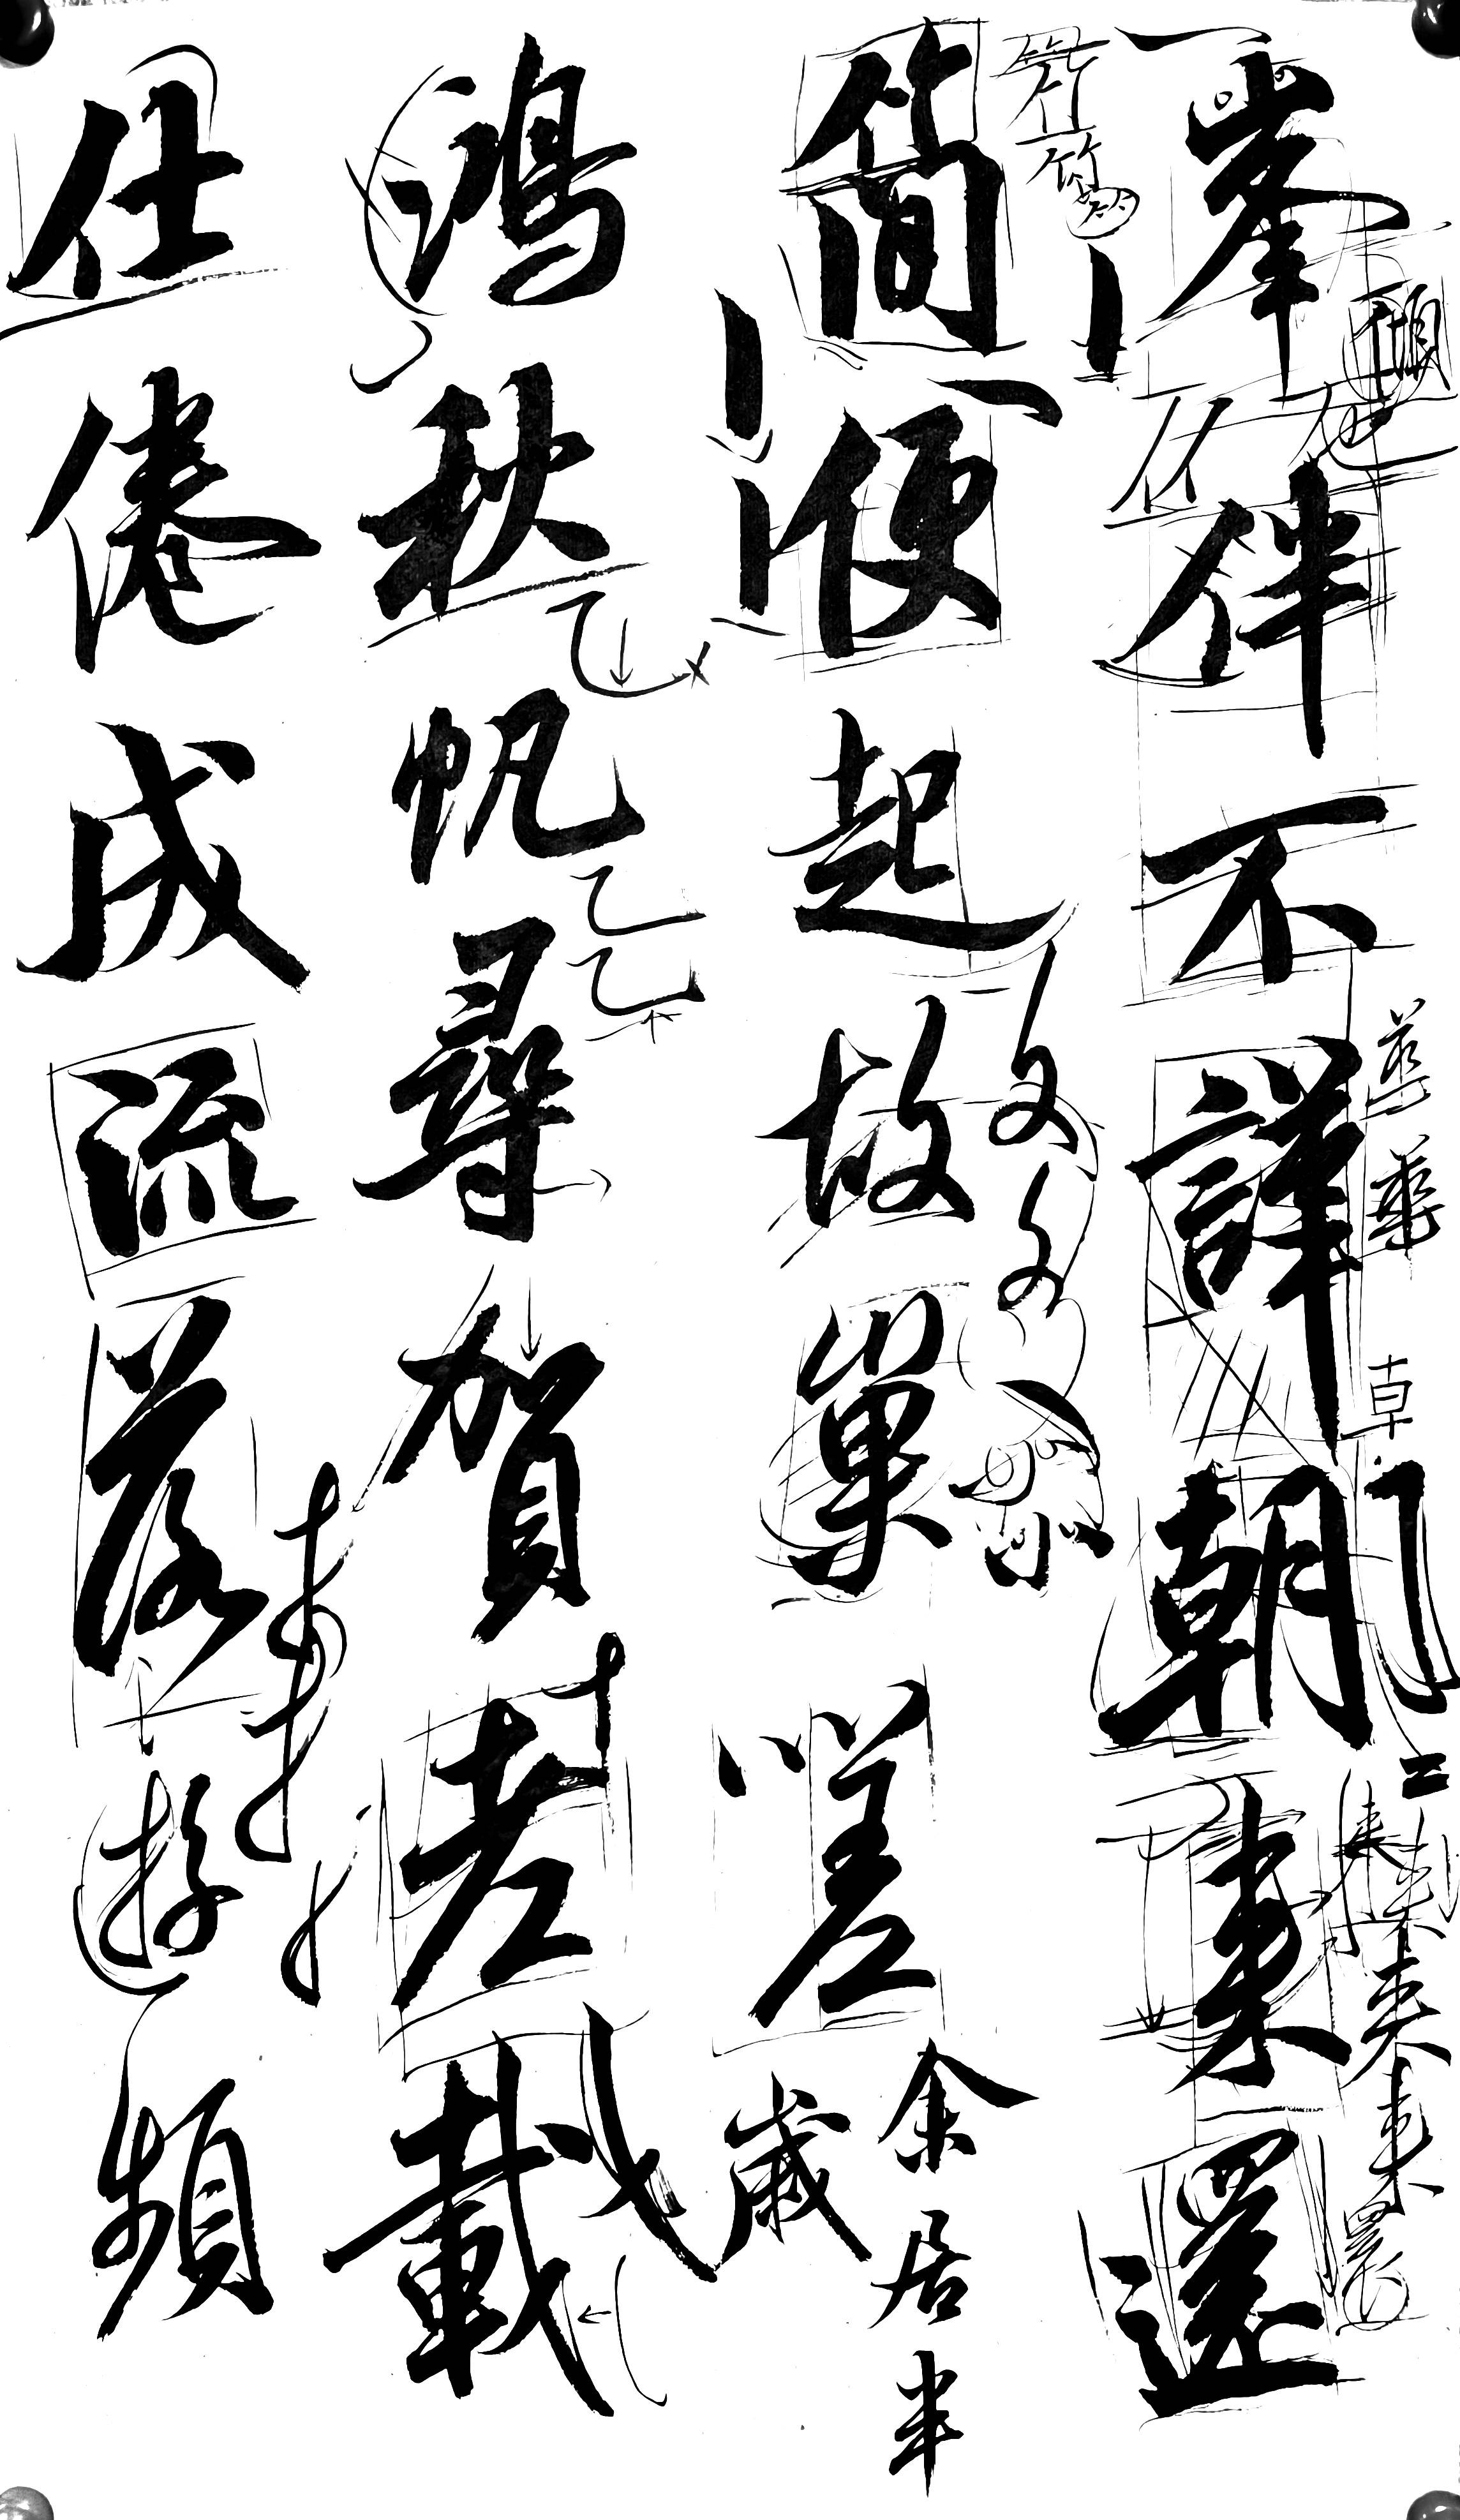 峯伴不譁朝來還
簡便起故巢嗟
余居半
歲
鴻秋帆尋賀老載
仕倦成流落游頻